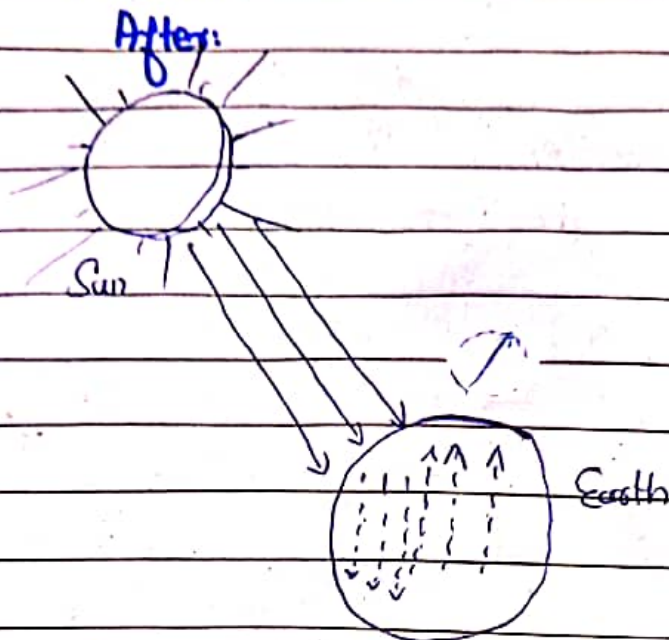 After:
Sun
Earth